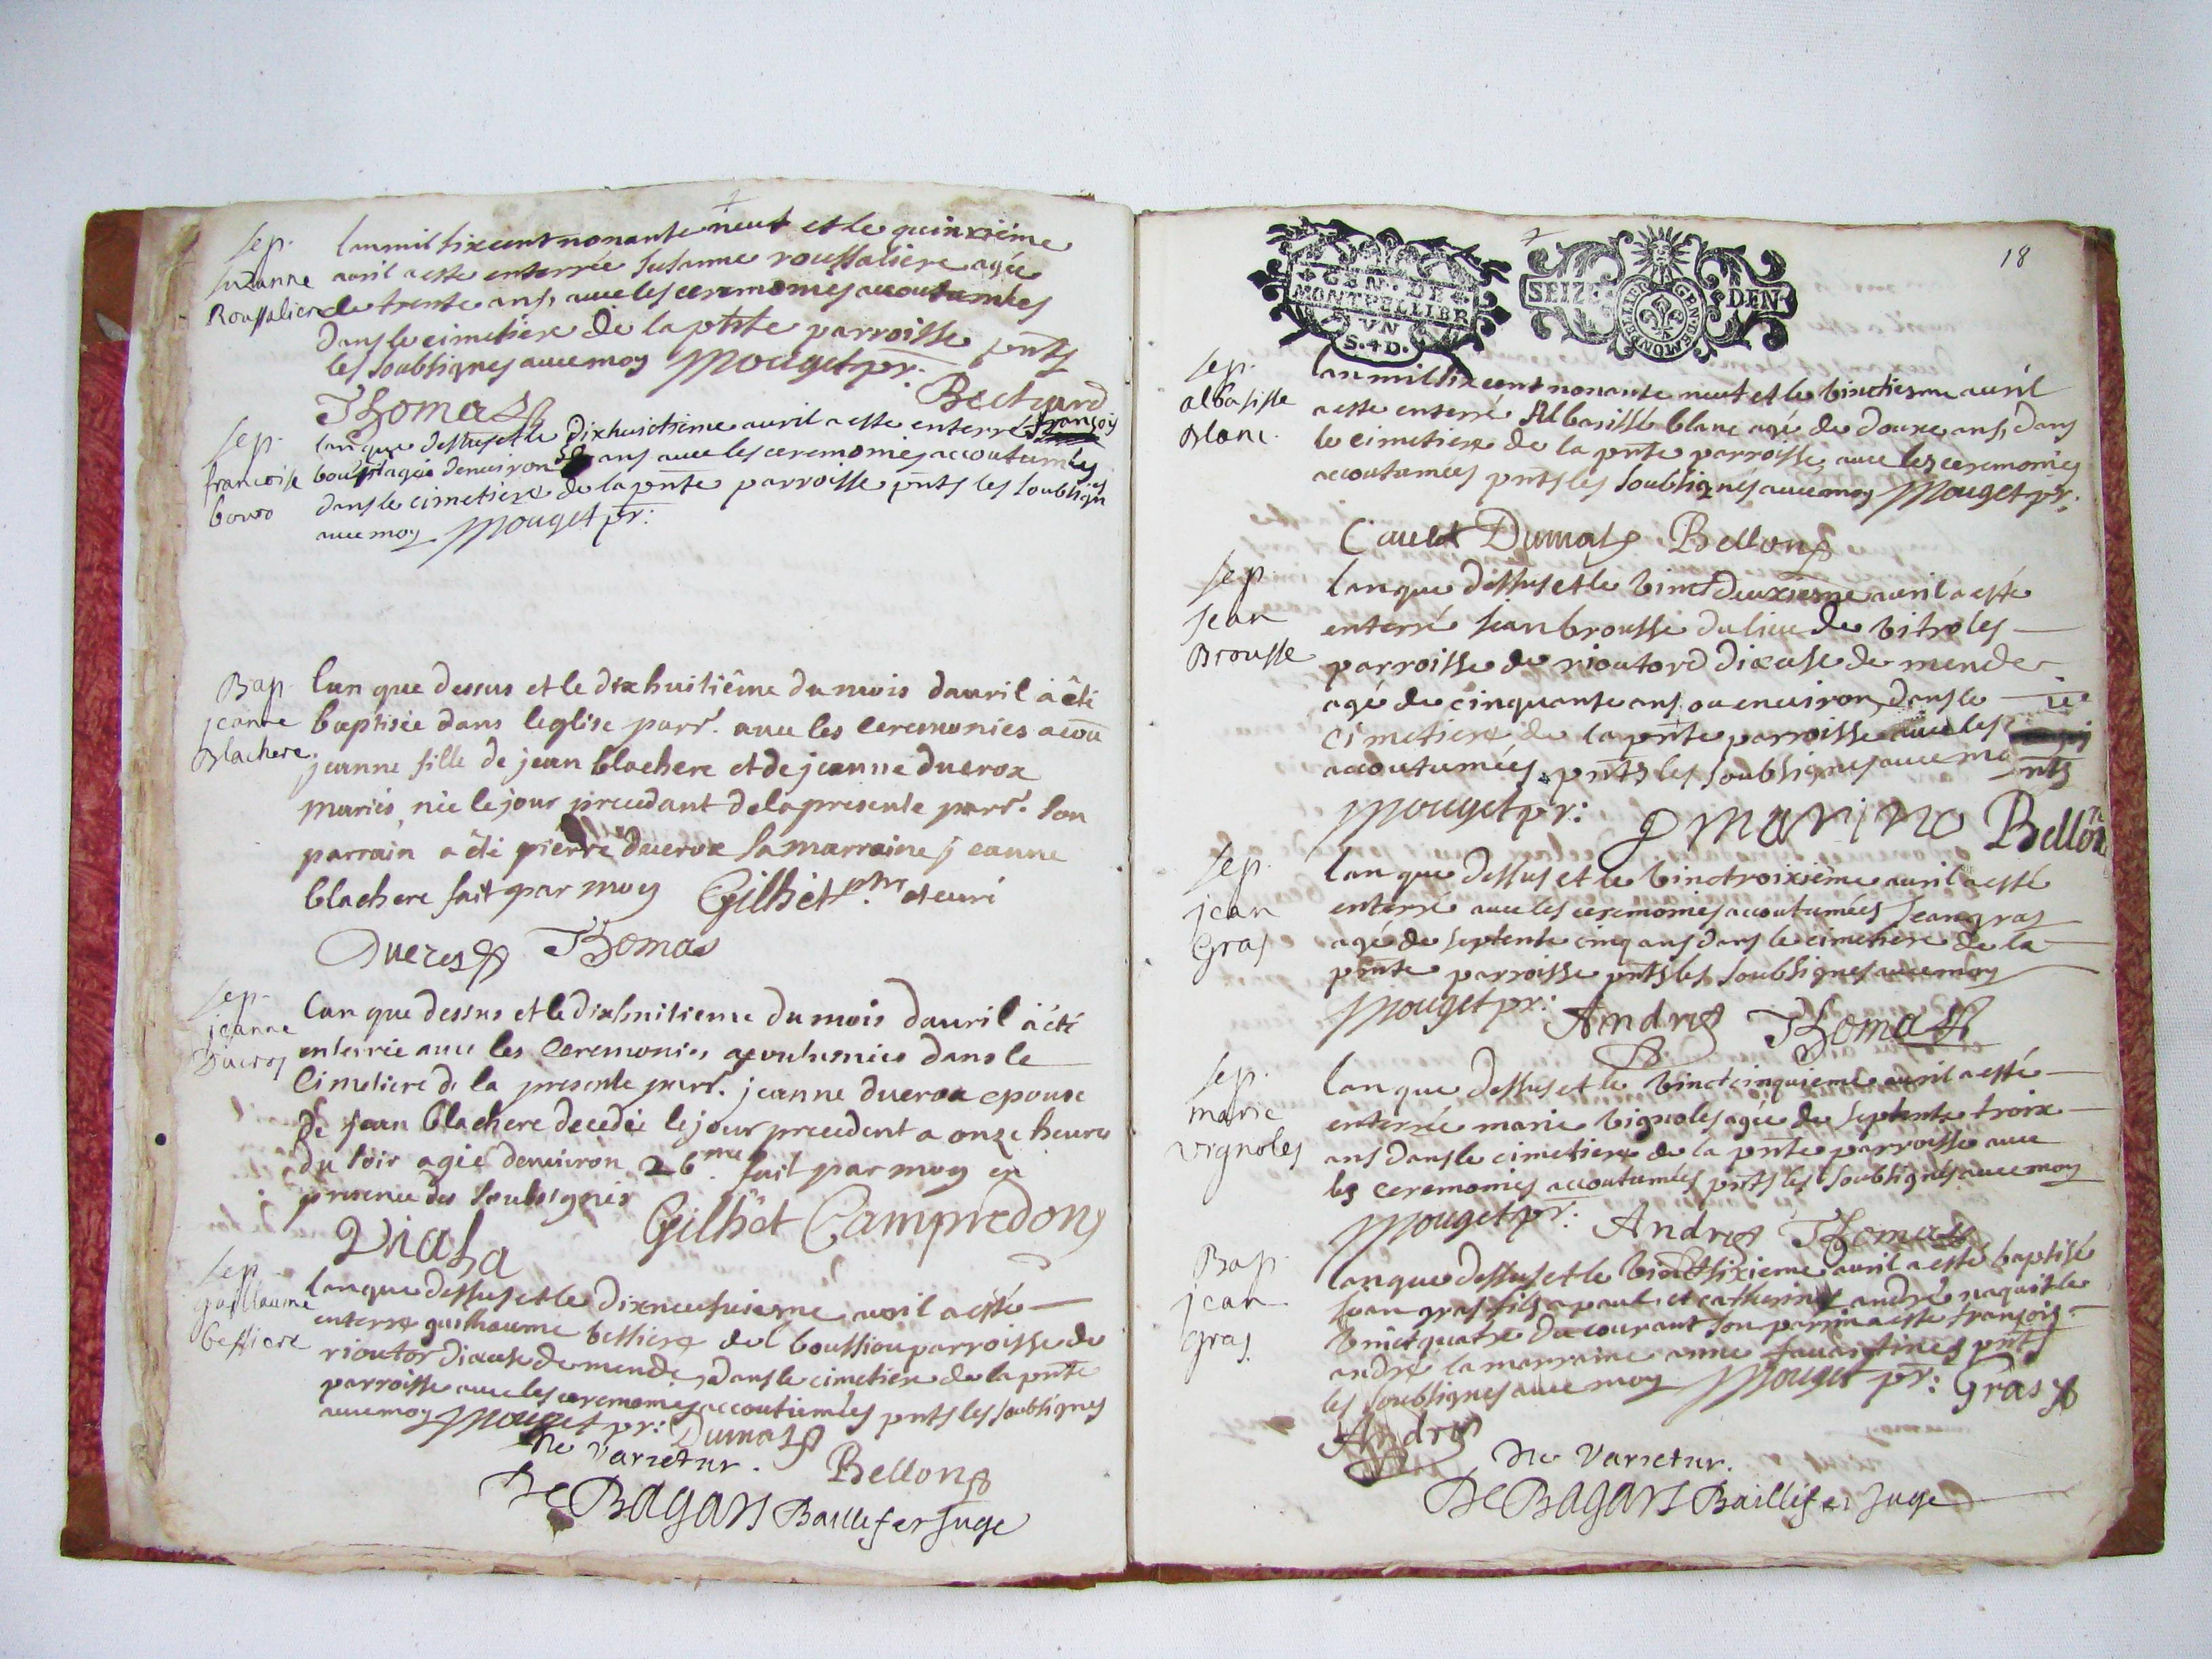 Sep.
Suzanne
Roussaliere
lan mil six cent nonante neuf et le quinxiéme
auril a este enterrée Susanne roussaliere agée
de trente ans, auec les ceremonies accoutumées
dans le cimetiere de la pnte parroisse pnts
les soubsignes auec moy Mouget pr.
Thomas Bechard
Sep.
francoise
lan que dessus et le dixhuictieme auril a esté enterré françoi
agée denuiron ans auec les ceremonies accoutumées
dans le cimetiere de la pnte parroisse pnts les soubsign
auec moy Mouget pr:
Bap
jeanne
Blachere.
Lan que dessus et le dix huitiême du mois dauril à êté
baptisée dans leglise parr. auec les ceremonies acou
jeanne fille de jean blachere et de jeanne ducrox
mariés, née le jour precedant de la presente parr. son
parrain a êté pierre ducrox sa marraine jeanne
blachere fait par moy Gilhet ptre et curé
Ducros Thomas
Sep.
jeanne
Ducros
Lan que dessus et le dixhuitieme du mois dauril à été
enterrée auec les Ceremonies acoutumées dans le
Cimetiere de la presente parr. jeanne ducrox epouse
de jean blachere decedée le jour precedent a onze heures
du soir agée denuiron 26 fait par moy en
presence des soubsignés
Gilhet Campredon
Viala
Sep.
guillaume
bessiere
lan que dessus et le dixneufuieme auril a esté
enterre guilhaume bessiere del boussiou parroisse de
rioutor dicese de mende, dans le cimetiere de la pnte
parroisse auec les ceremonies accoutumées pnts les soubsignes
auec moy Mouget pr: Dumas
Ne Varietur. Bellon
De Bagars Baillif et Juge
18
GEN. DE
MONTPELLIER
VN
S. 4 D.
SEIZE DEN
GEN DE MONTPELLIER
Sep.
albasisse
Blanc.
lan mil six cent nonante neuf et le vinctiesme auril
a esté enterré Albasissé blanc agé de douxe ans, dans
le cimetiere de la pnte parroisse, auec les ceremonies
accoutumées pnts les soubsignés auec moy Mouget pr.
Caulet Dumas Bellon
Sep.
Jean
Brousse
lan que dessus et le vinct deuxiesme auril a esté
enterré jean brousse du lieu de vitroles
parroisse de rioutord dicese de mende
agé de cinquante ans ou enuiron, dans le
cimetiere de la pnte parroisse auec les
accoutumées pnts les soubsignes auec mo
Mouget pr: Bellon
Sep.
jean
Gras
lan que dessus et le vinctroixiéme auril a esté
enterré auec les ceremonies accoutumées Jean gras
agé de septente cinq ans dans le cimetiere de la
pnte parroisse pnts les soubsignes auec moy
Mouget pr: Andre Thomas
Sep.
marie
vignoles
lan que dessus et le vinctcinquieme auril a esté
enterrée marie vignoles agée de septente troix
ans dans le cimetiere de la pnte parroisse auec
les ceremonies accoutumées pnts les soubsignés auec moy
Mouget pr: Andre Thomas
Bap.
jean
gras.
lan que dessus et le vinctsixieme auril a esté baptisé
Jean gras fils a paul et catherine andré naquit le
vinctquatre du courant son parrin a este françois
andre la marraine anne fauantines pnts
les soubsignes auec moy Mouget pr: Gras
Andre
Ne Varietur.
De Bagars Baillif et Juge